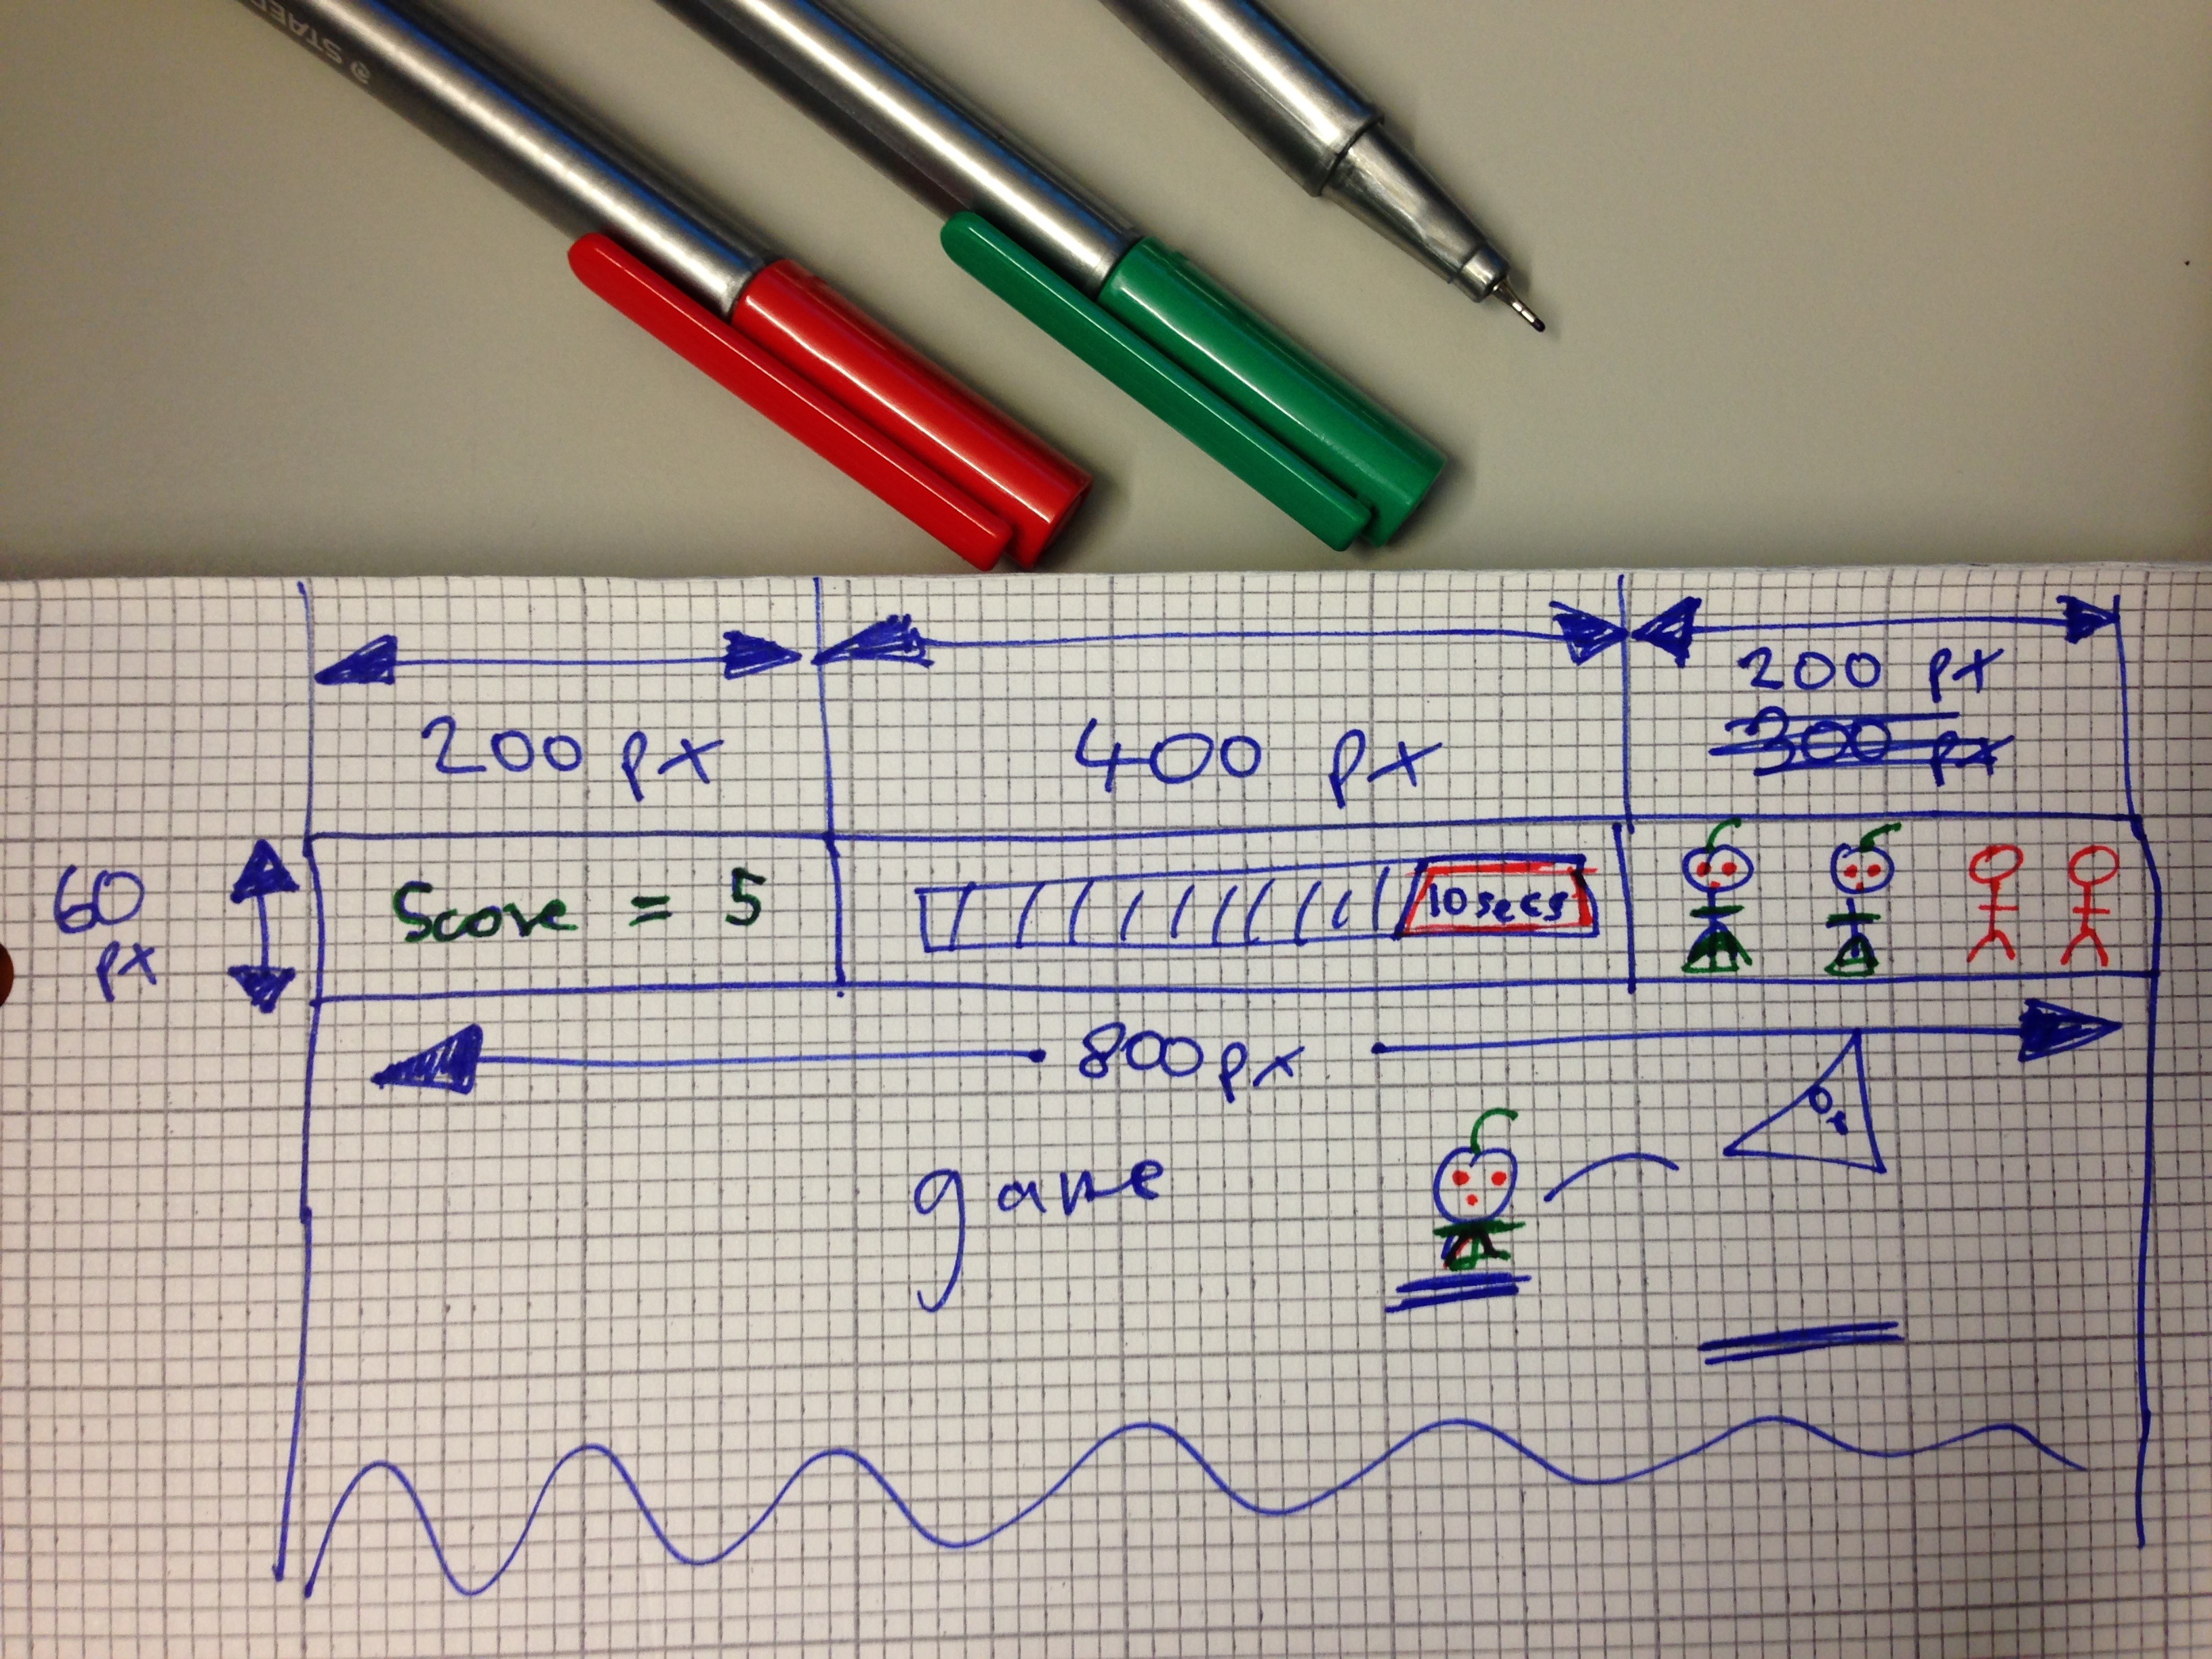 STAED
200 px
400 px
200 px
300 px
60
px
Score = 5
10 secs
800px
game